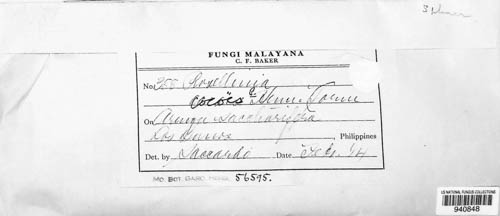 FUNGI MALAYANA
C. F. BAKER
No. 355 Rosellinia
cocoës
On Arenga saccharifera
Los Banos, Philippines
Det. by Saccardo Date Feb. '14
MO. BOT. GARD. HERB. 56575.
US NATIONAL FUNGUS COLLECTIONS
940848